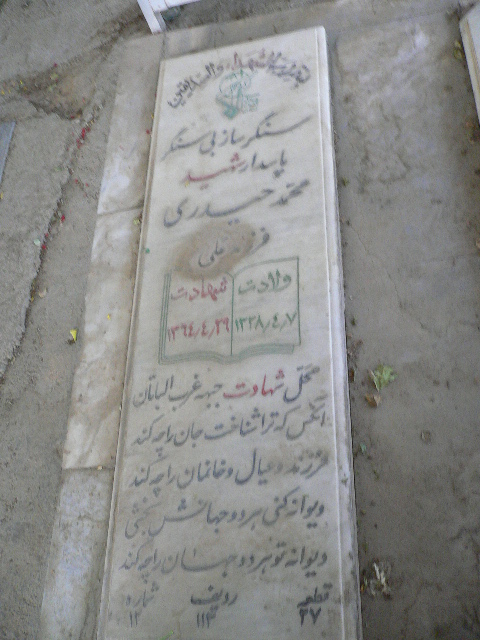 سنگرساز بی سنگر
پاسدار شهید
محمد حیدری
فرزند علی
ولادت شهادت
۱۳۳۸/۴/۷ ۱۳۶۴/۴/۲۹
محل شهادت جبهه غرب البانان
آنکس که تراشناخت جان راچه کند
فرزند و عیال و خانمان راچه کند
دیوانه کنی هر دو جهانش بخشی
دیوانه تو هر دو جهان راچه کند
قطعه ردیف شماره
۲۷ ۱۱۳ ۱۲